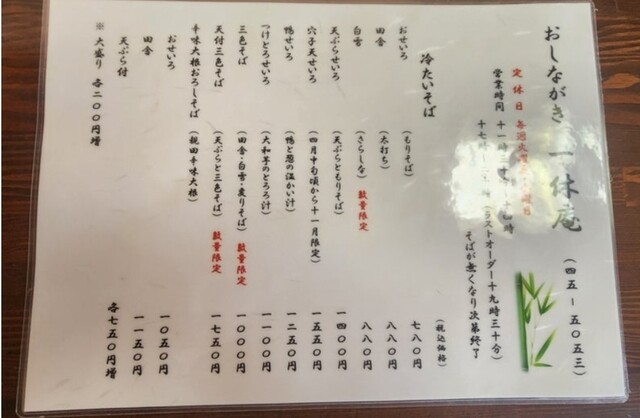 おしながき 一休庵 (四五ー五〇五三)
定休日 毎週火曜
営業時間 十一時三
(ラストオーダー十九時三十分)
そばが無くなり次第終了
冷たいそば
(税込価格)
おせいろ (もりそば) 七八〇円
田舎 (太打ち) 八八〇円
白雪 (さらしな) 数量限定 八八〇円
天ぷらせいろ 天ぷらともりそば 一四〇〇円
穴子天せいろ (四月中旬頃から十一月限定) 一五五〇円
鴨せいろ (鴨と葱の温かい汁) 一二五〇円
つけとろせいろ (大和芋のとろろ汁) 一一〇〇円
三色そば (田舎・白雪・変りそば) 数量限定 一〇〇〇円
天付三色そば (天ぷらと三色そば) 数量限定 一七五〇円
辛味大根おろしそば (親田辛味大根)
おせいろ 一〇五〇円
田舎 一一五〇円
天ぷら付 各七五〇円増
※ 大盛り 各二〇〇円増